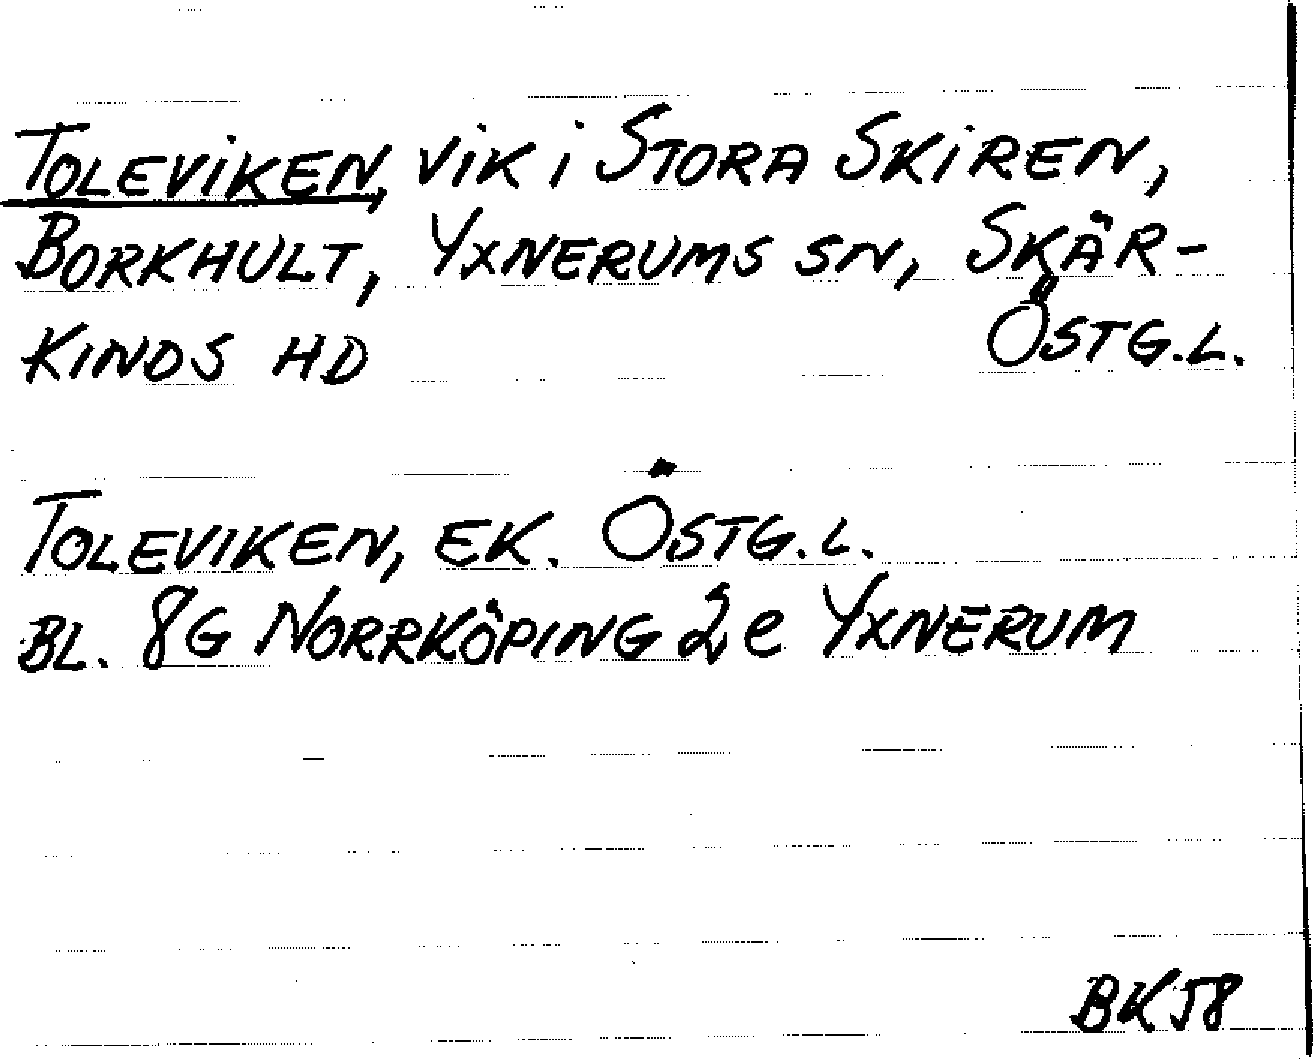 TOLEVIKEN, VIK I STORA SKIREN,
BORKHULT, YXNERUMS SN, SKÄR-
KINDS HD ÖSTG.L.
TOLEVIKEN, EK. ÖSTG.L.
BL. 8G NORRKÖPING 2e YXNERUM
BK58